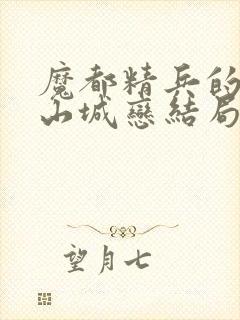 魔都精兵的
山城戀結局
望月七